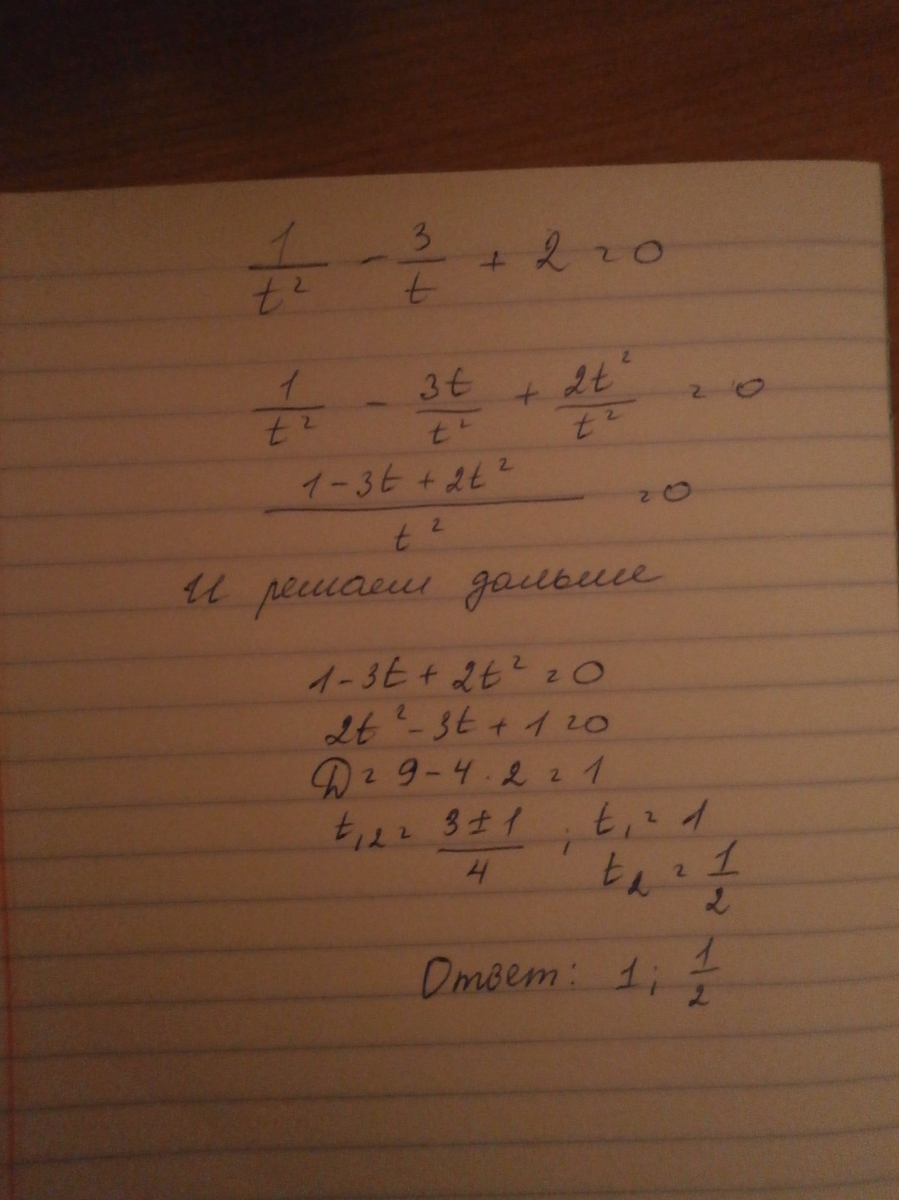 1/t² - 3/t + 2 = 0
1/t² - 3t/t² + 2t²/t² = 0
(1-3t+2t²)/t² = 0
И решаем дальше
1-3t+2t² = 0
2t²-3t+1=0
D = 9-4·2 = 1
t₁,₂ = (3±1)/4 ; t₁ = 1
t₂ = 1/2
Ответ: 1; 1/2